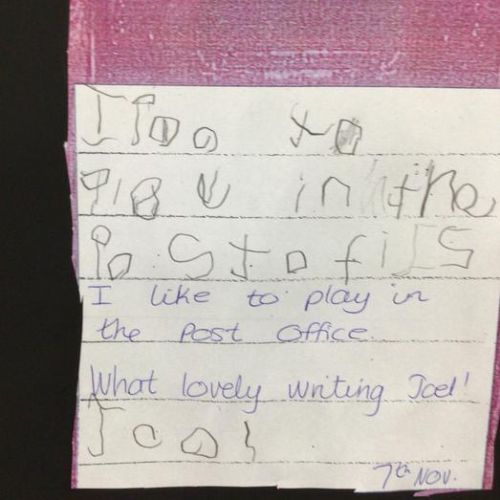 to
in the
Postofis
I like to play in
the Post Office.
What lovely writing Joel!
Joel
7th Nov.